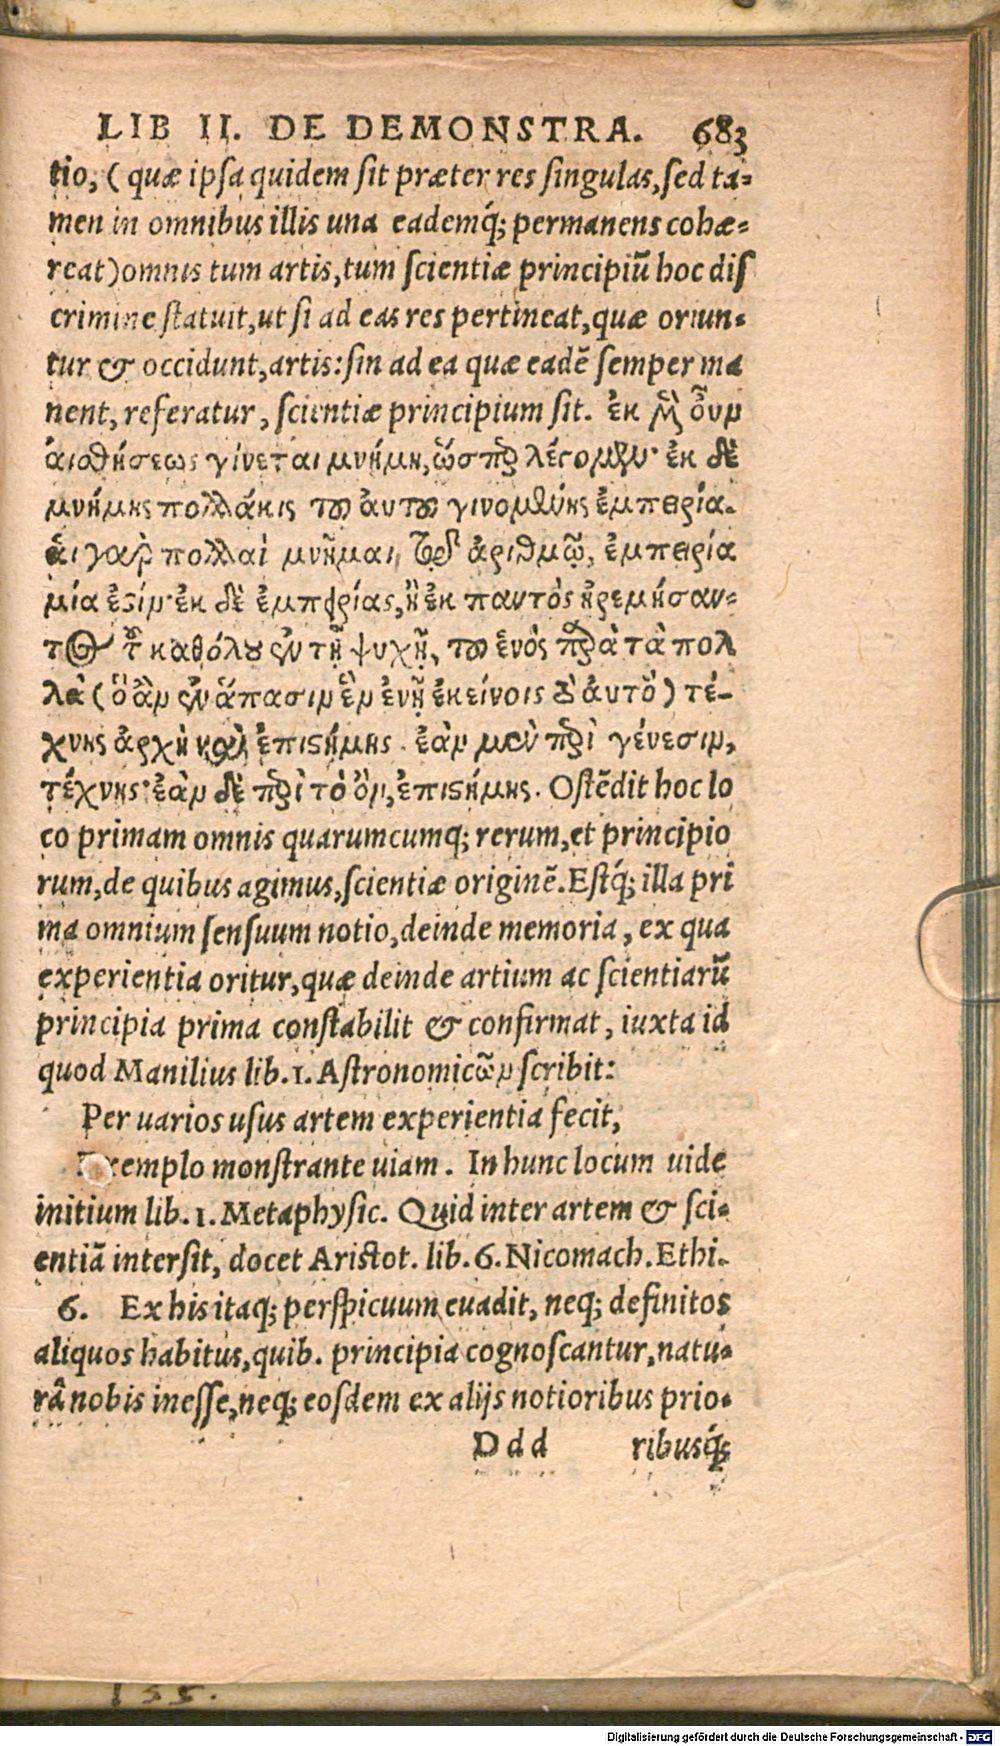 LIB II. DE DEMONSTRA. 683
tio, ( quæ ipsa quidem sit præter res singulas, sed ta-
men in omnibus illis una eademq́; permanens cohæ-
reat ) omnis tum artis, tum scientiæ principiũ hoc dis
crimine statuit, ut si ad eas res pertineat, quæ oriun-
tur & occidunt, artis: sin ad ea quæ eadẽ semper ma
nent, referatur, scientiæ principium sit. ἐκ μὲν οὖν
αἰσθήσεως γίνεται μνήμη, ὥσπερ λέγομεν· ἐκ δὲ
μνήμης πολλάκις τοῦ αὐτοῦ γινομένης ἐμπειρία.
αἱ γὰρ πολλαὶ μνῆμαι, τῷ ἀριθμῷ, ἐμπειρία
μία ἐστίν· ἐκ δὲ ἐμπειρίας, ἢ ἐκ παντὸς ἠρεμήσαν-
τος τοῦ καθόλου ἐν τῇ ψυχῇ, τοῦ ἑνὸς παρὰ τὰ πολ
λὰ ( ὃ ἂν ἐν ἅπασιν ἓν ἐνῇ ἐκείνοις τὸ αὐτὸ ) τέ-
χνης ἀρχὴ καὶ ἐπιστήμης. ἐὰν μὲν περὶ γένεσιν,
τέχνης· ἐὰν δὲ περὶ τὸ ὂν, ἐπιστήμης. Ostẽdit hoc lo
co primam omnis quarumcumq; rerum, et principio
rum, de quibus agimus, scientiæ originẽ. Estq́; illa pri
ma omnium sensuum notio, deinde memoria, ex qua
experientia oritur, quæ deinde artium ac scientiarũ
principia prima constabilit & confirmat, iuxta id
quod Manilius lib. 1. Astronomicῶν scribit:
Per uarios usus artem experientia fecit,
Exemplo monstrante uiam. In hunc locum uide
initium lib. 1. Metaphysic. Quid inter artem & sci-
entiã intersit, docet Aristot. lib. 6. Nicomach. Ethi.
6. Ex his itaq; perspicuum euadit, neq; definitos
aliquos habitus, quib. principia cognoscantur, natu-
râ nobis inesse, neq; eosdem ex alijs notioribus prio-
D d d ribusq́;
155.
Digitalisierung gefördert durch die Deutsche Forschungsgemeinschaft - DFG